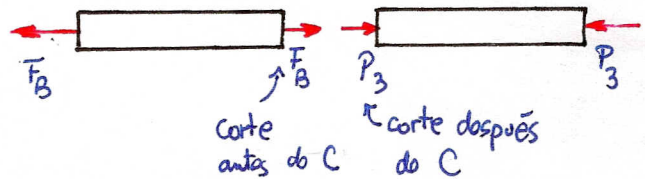 F_B F_B P_3 P_3
corte
antes do C
corte dospués
do C